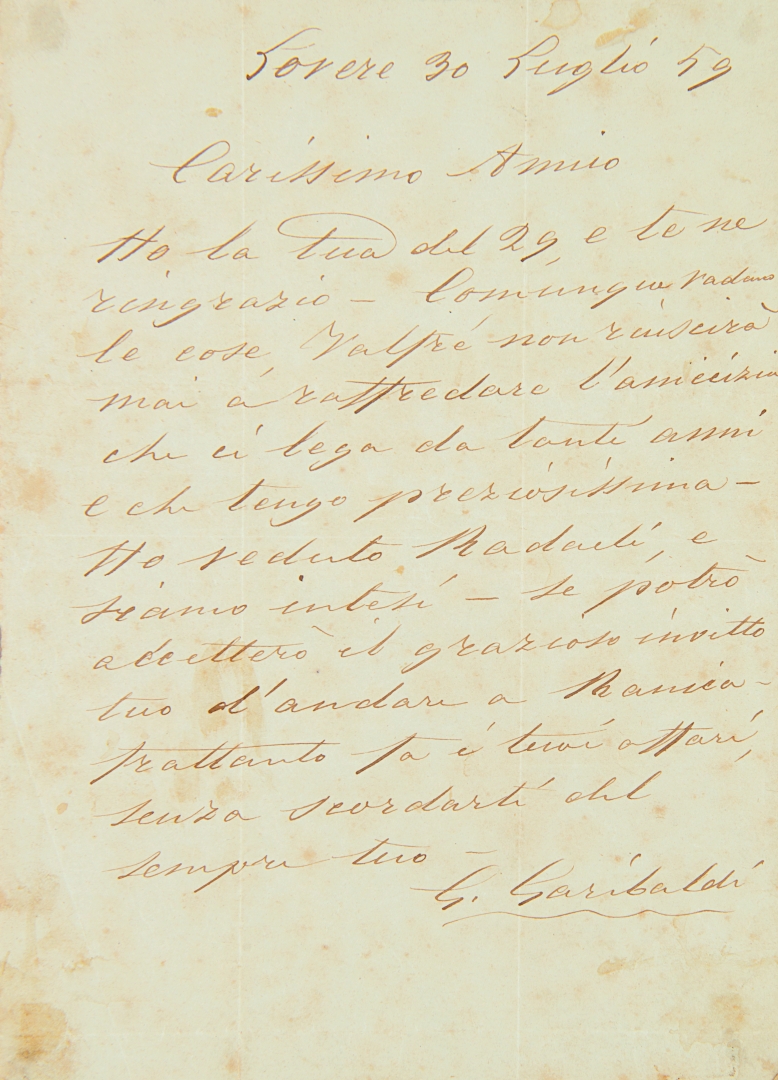 Lovere 30 Luglio 59
Carissimo Amico
Ho la tua del 29, e te ne
ringrazio – Comunque vadano
le cose, Valfré non riuscirà
mai á raffredare l'amicizia
che ci lega da tanti anni
e che tengo preziosissima –
Ho veduto Radaeli, e
siamo intesi – se potrò
accetterò il grazioso invitto
tuo d'andare a Ranica –
frattanto fa i tuoi affari,
senza scordarti del
sempre tuo –
G. Garibaldi